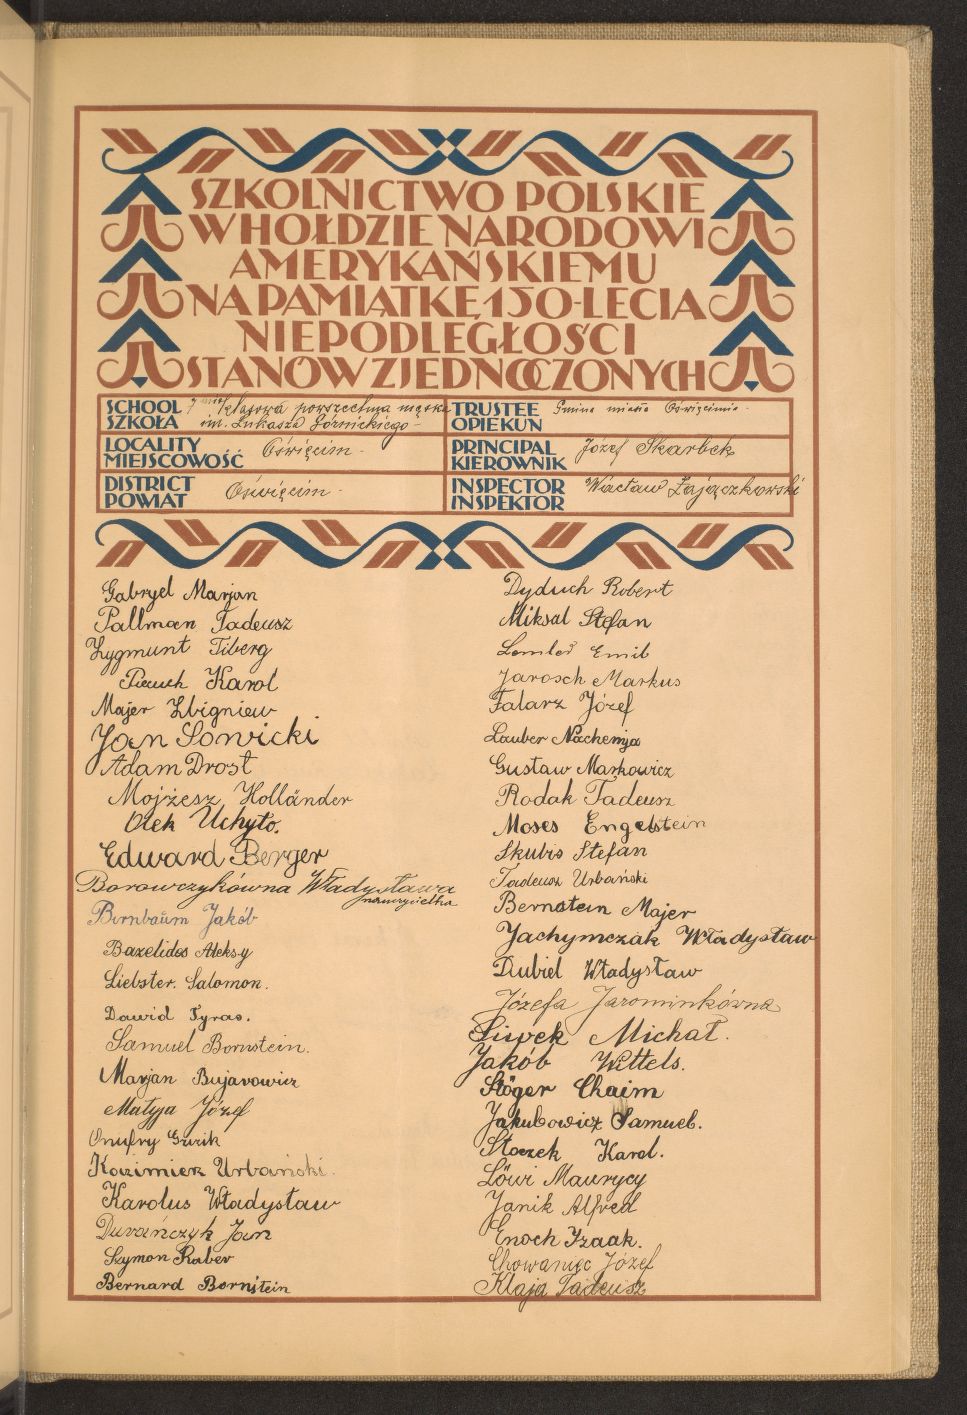 SZKOLNICTWO POLSKIE
W HOŁDZIE NARODOWI
AMERYKAŃSKIEMU
NA PAMIĄTKĘ 150-LECIA
NIEPODLEGŁOŚCI
STANÓW ZJEDNOCZONYCH
SCHOOL
SZKOŁA
7 mio klasowa powszechna męska
im. Łukasza Górnickiego
TRUSTEE
OPIEKUN
Gmina miasta Oświęcimia
LOCALITY
MIEJSCOWOŚĆ
Oświęcim
PRINCIPAL
KIEROWNIK
Józef Skarbek
DISTRICT
POWIAT
Oświęcim
INSPECTOR
INSPEKTOR
Wacław Zajączkowski
Gabryel Marjan
Pallman Tadeusz
Zygmunt Tiberg
Karol
Majer Zbigniew
Jan Sowicki
Adam Drost
Mojżesz Holländer
Olek Uchyło.
Edward Berger
Borowczykówna Władysława
nauczycielka
Birnbaum Jakób
Bazelides Aleksy
Liebster. Salomon.
Dawid Tyras.
Samuel Bornstein.
Marjan Bujarowicz
Matyja Józef
Onufry Guzik
Kazimierz Urbański.
Karolus Władysław
Duvańczyk Jan
Szymon Raber
Bernard Bornstein
Dyduch Robert
Miksal Stefan
Emil
Jarosch Markus
Falarz Józef
Lauber Nachemja
Gustaw Markowicz
Rodak Tadeusz
Moses Engelstein
Skubis Stefan
Tadeusz Urbański
Bernstein Majer
Jachymczak Władysław
Dubiel Władysław
Józefa Jarominkówna
Siwek Michał.
Jakób Wittels.
Stöger Chaim
Jakubowicz Samuel.
Stoczek Karol.
Löwi Maurycy
Janik Alfred
Enoch Izaak.
Chowaniec Józef
Klaja Tadeusz